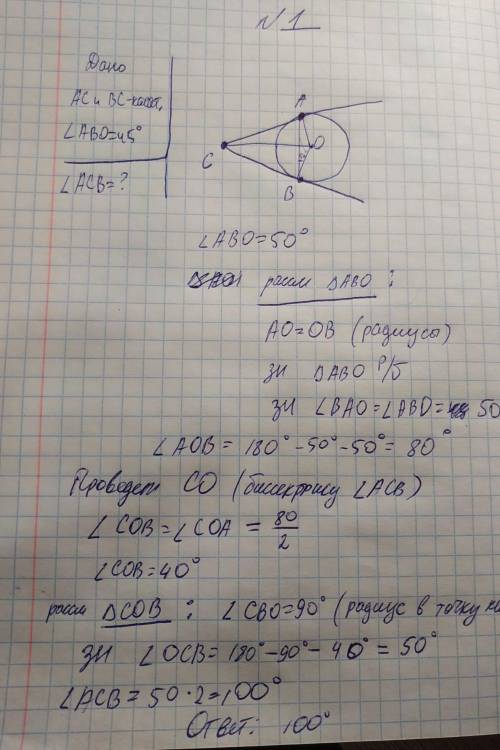 N 1
Дано
AC и BC-касат.
∠ABO=45°
∠ACB=?
A
O
C
B
∠ABO=50°
рассм ΔABO :
AO=OB (радиусы)
зн ΔABO р/б
зн ∠BAO=∠ABO= 50
∠AOB= 180°-50°-50°= 80°
Проведем CO (биссектрису ∠ACB)
∠COB=∠COA = 80/2
∠COB=40°
рассм ΔCOB : ∠CBO=90° (радиус в точку ка
зн ∠OCB= 180°-90°- 40° = 50°
∠ACB= 50·2=100°
Ответ: 100°